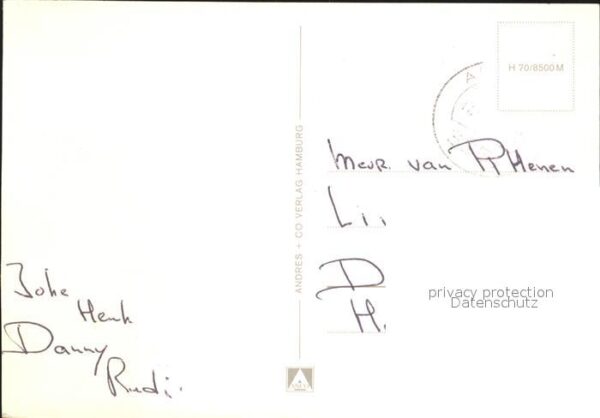 H 70/8500 M
ANDRES + CO VERLAG HAMBURG
Meur. van
Li.
D
H.
privacy protection
Datenschutz
Johe
Henk
Danny
Rudi.